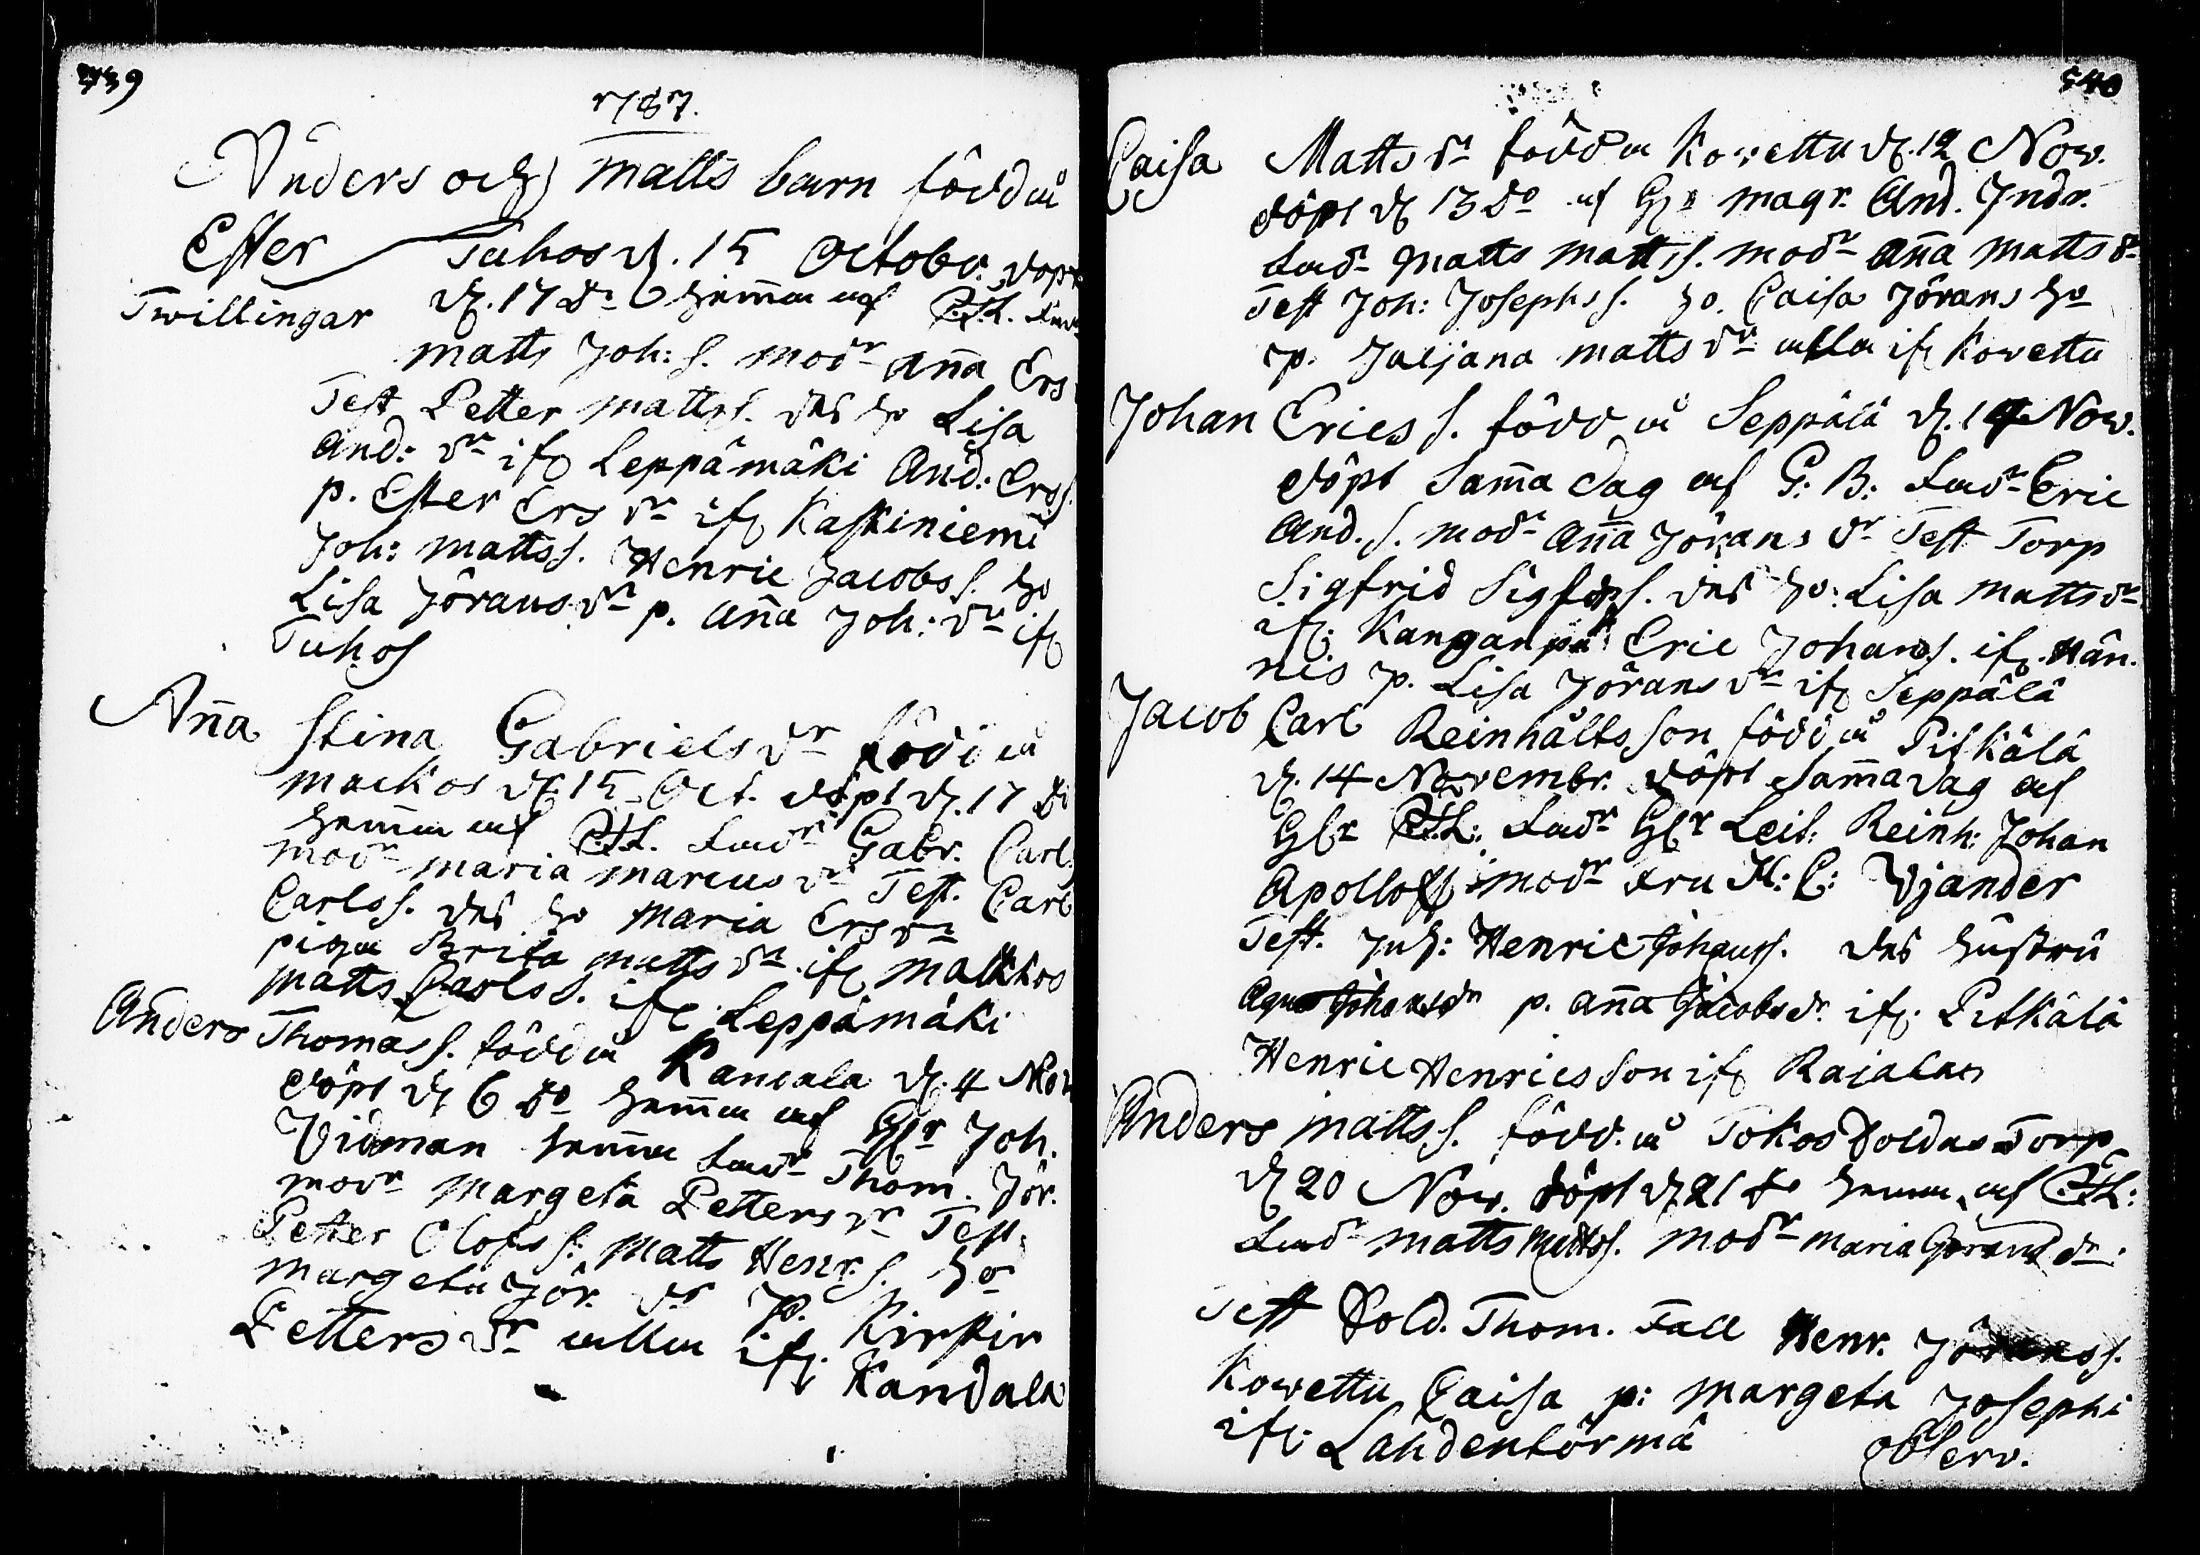 539
1787.
Anders och Matts barn född å
Ester Tuhos d. 15 Octobr. döpt
Twillingar d. 17 do hemma af Fadr
Matts Joh: s. Modr Aña Ers
Test Petter Matts s. des ho Lisa
And: dr ifr Leppämäki And: Ers s.
p. Ester Ers dr ifr Kaskiniemi
Joh: Matts s. Henric Jacobs s. ho
Lisa Jörans dr p. Aña Joh: dr ifr
Tuhos
Aña Stina Gabriels dr född å
Mackos d. 15 Oct. döpt d. 17 do
hemma af Fadr Gabr. Carls
Modr Maria Marcus dr Test. Carl
Carls s. des ho Maria Ers dr
piga Brita Matts dr ifr Mackos
Matts Carls s. ifr Leppämäki
Anders Thomas s. född å Kancala d. 4 Nov
döpt d. 6 do hemma af Hr Joh.
Vidman hemma Fadr Thom. Jör.
Modr Margeta Petters dr Test.
Petter Olofs s. Matts Henr. s. ho
Margeta Jör. dr p. Kirstin
Petters dr alla ifr Kandala
540
Caisa Matts dr född å Kowettu d. 12 Nov.
döpt d. 13 do af Hr Magr. And. Indr.
Fadr Matts Matts s. Modr Aña Matts dr
Test Joh: Josephs s. ho. Caisa Jörans dr
p. Juljana Matts dr alla ifr Kowettu
Johan Erics s. född å Seppälä d. 14 Nov.
döpt Sama dag af G: B: Fadr Eric
And. s. Modr Aña Jörans dr Test Torp
Sigfrid Sigfrs s. des ho: Lisa Matts dr
ifr: Kanganpä Eric Johans s. ifr. Nän.
nis p. Lisa Jörans dr ifr Seppälä
Jacob Carl Reinhålts Son född å Pitkälä
d. 14 Novembr. döpt Sama dag af
Hr Fadr Hr Leit: Reinh: Johan
Apolloff Modr Fru H: C: Wjander
Test. Inh: Henric Johans s. des hustru
Agnes Johansdr p. Aña Jacobs dr ifr. Pitkälä
Henric Henrics Son ifr Rajalax
Anders Matts s. född. å Tokos Soldas Torp
d. 20 Nov. döpt d. 21 do hemma af
Fadr Matts Matts s. Modr Maria Görans dr
Test Sold. Thom. Fall Henr. Jörans s.
Kowettu Caisa p: Margeta Josephi
ifr: Lahdentörmä Observ.